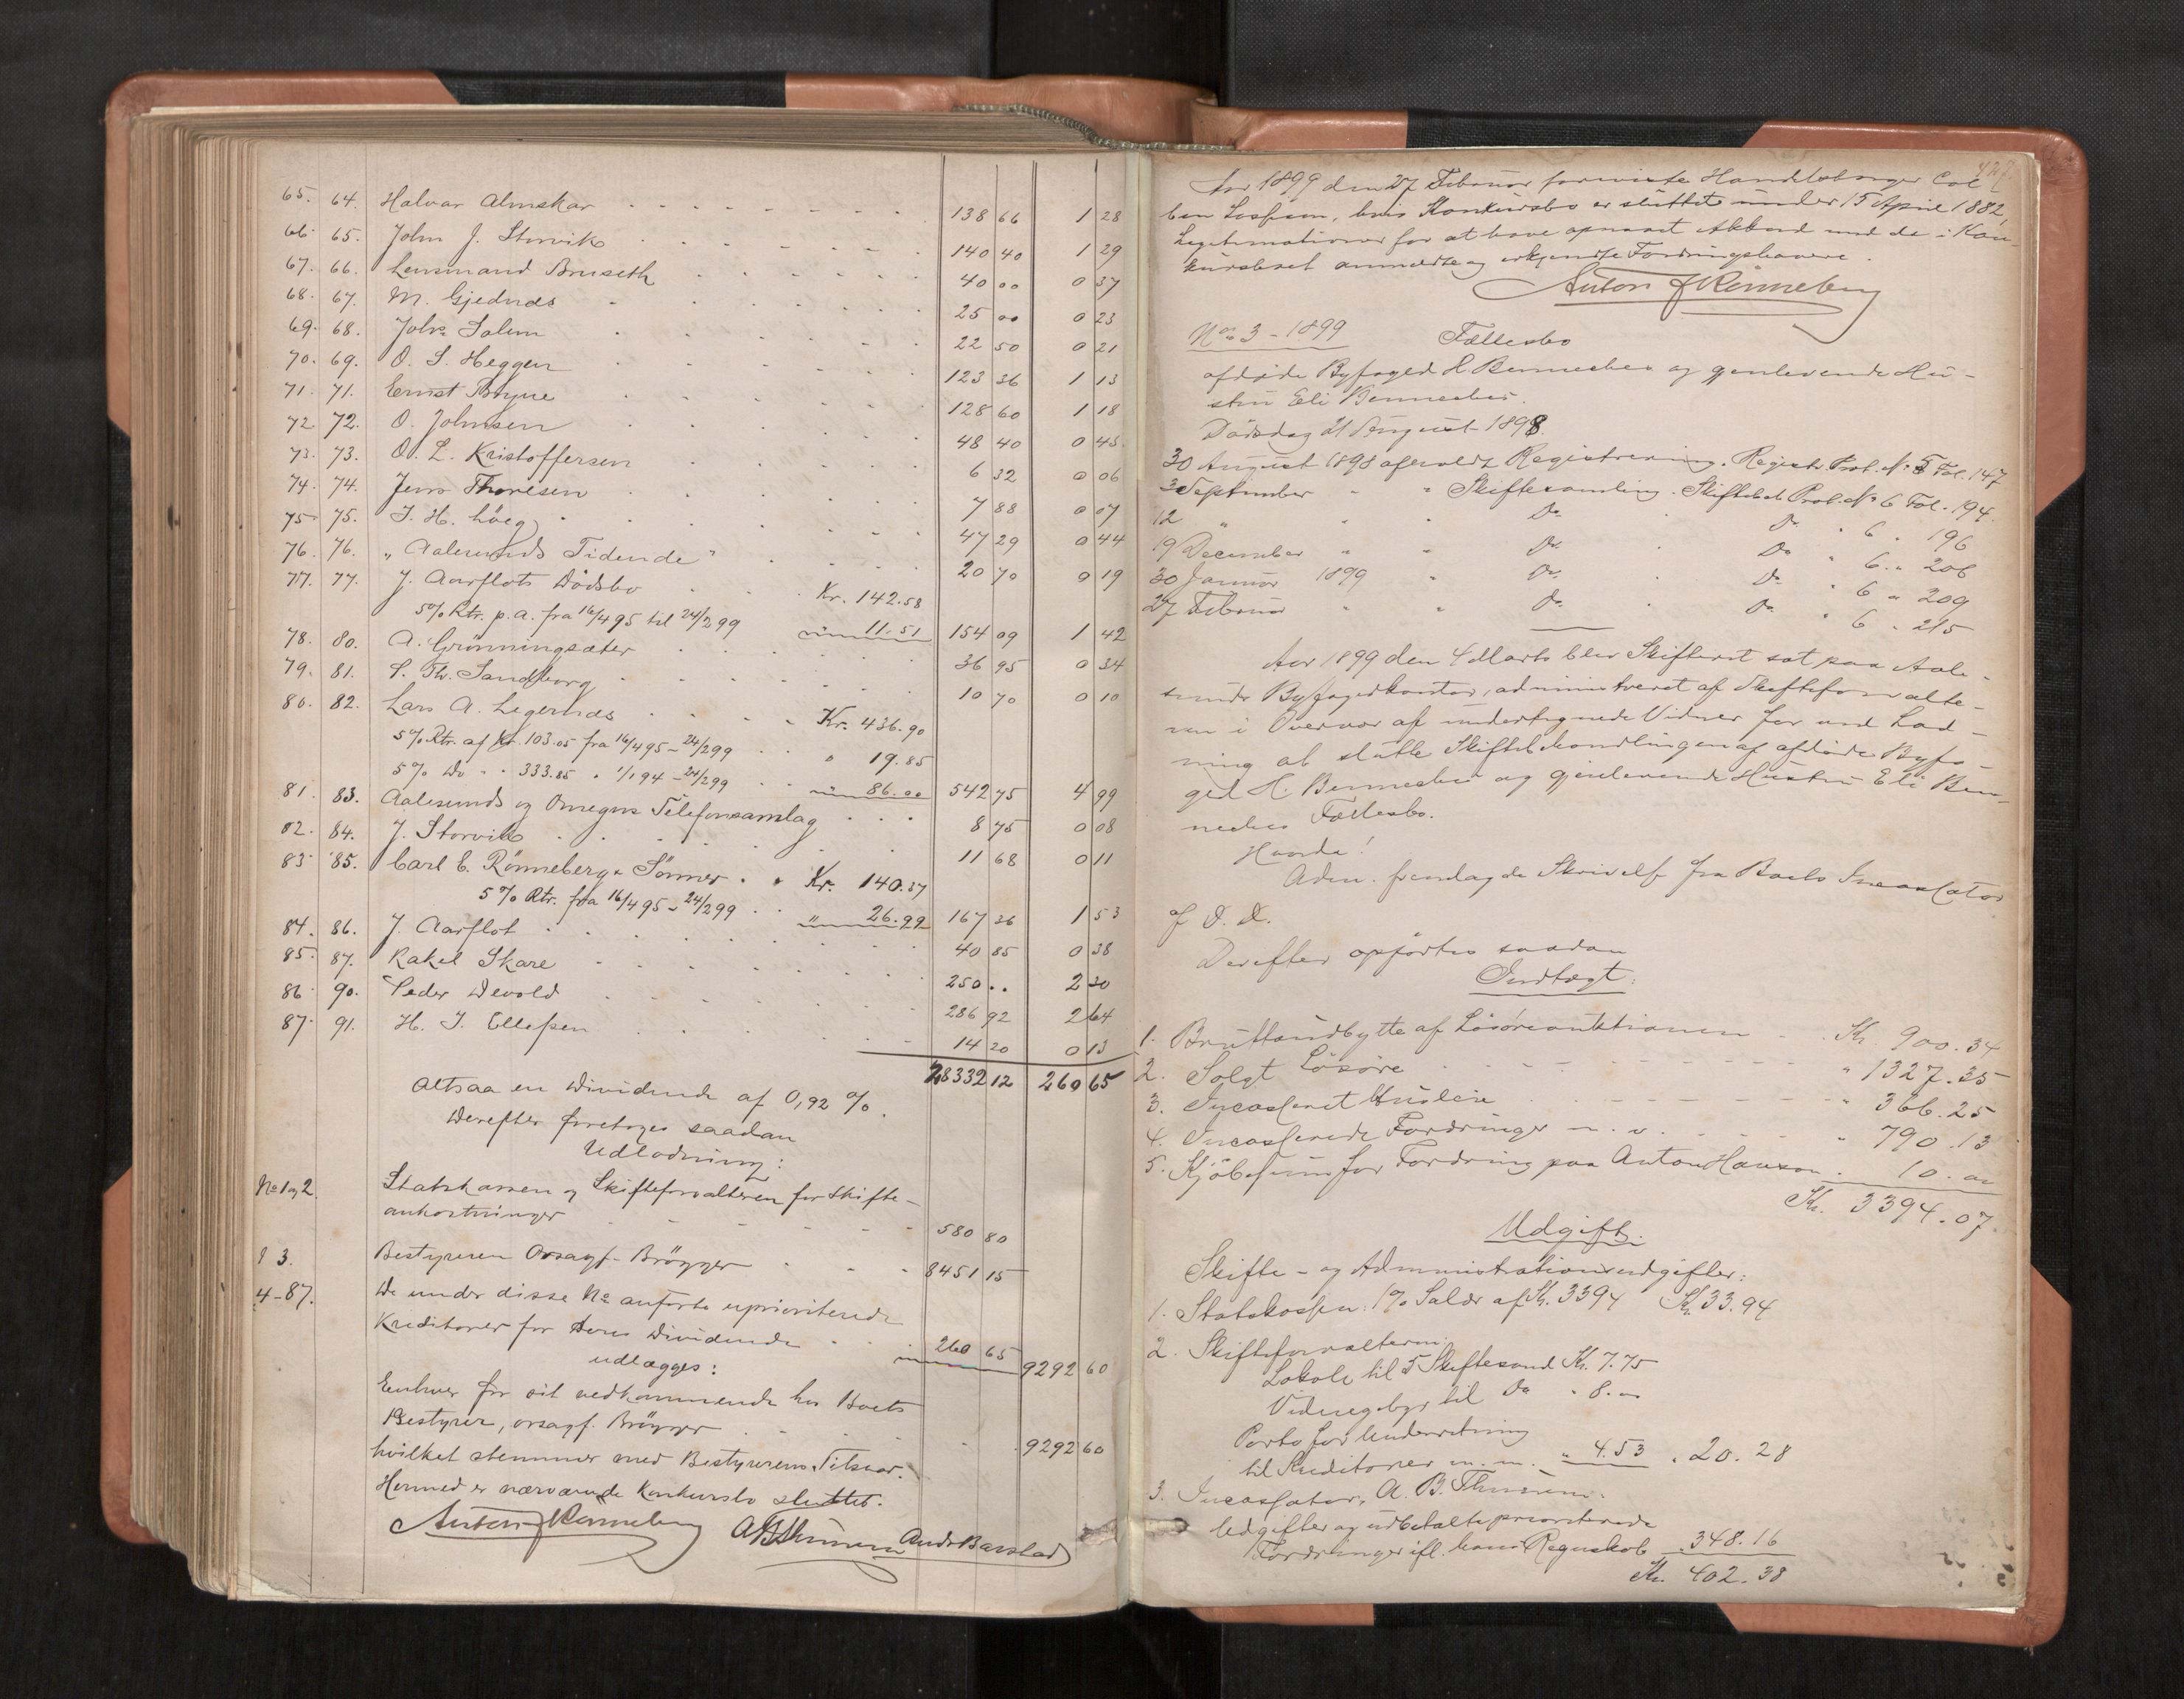 65. 64. Halvar Almskar 138 66 1 28
66. 65. John J. Storvik 140 40 1 29
67. 66. Lensmand Bruseth 40 00 0 37
68. 67. M. Gjednæs 25 00 0 23
69. 68. Johs Solem 22 50 0 21
70. 69. O. S. Heggen 123 36 1 13
71. 71. Ernst Thyne 128 60 1 18
72 72. O. Johnsen 48 40 0 45
73. 73. O. L. Kristoffersen 6 32 0 06
74. 74. Jens Thoresen 7 88 0 07
75 75. J. H. Höeg 47 29 0 44
76. 76. „Aalesunds Tidende" 20 70 0 19
77. 77. J. Aarflots Dödsbo Kr. 142.58
5% Rtr. p.a. fra 16/4 95 til 24/2 99 " 11.51 154 09 1 42
78. 80. A. Grönningsæter 36 95 0 34
79. 81. S. Th. Sandborg 10 70 0 10
80. 82. Lars A. Legernæs Kr. 436.90
5% Rtr. af Kr. 103.05 fra 16/4 95 - 24/2 99 " 19.85
5% Do " " 333.85 " 1/1 94 - 24/2 99 " 86.00 542 75 4 99
81. 83. Aalesunds og Omegns Telefonsamlag 8 75 0 08
82. 84. J. Storvik 11 68 0 11
83. 85. Carl E. Rönneberg & Sönner Kr. 140.37
5% Rtr. fra 16/4 95 - 24/2 99 " 26.99 167 36 1 53
84. 86. J. Aarflot 40 85 0 38
85. 87. Rakel Skare 250 .. 2 30
86 90. Peder Devold 286 92 2 64
87. 91. H. J. Ellefsen 14 20 0 13
28332 12 260 65
Altsaa en Dividende af 0,92 %.
Derefter foretages saadan
Udlodning:
No 1 og 2. Statskassen og Skifteforvalteren for Skifte-
omkostninger 580 80
" 3. Bestyreren Orsagf. Brögger 8451 15
4-87. De under disse No anförte uprioriterede
Kreditorer for deres Dividende 260 65 9292 60
udlægges:
Enhver for sit vedkommende hos Boets
Bestyrer, orsagf. Brögger 9292 60
hvilket stemmer med Bestyrerens Tilsvar.
Hermed er nærværende Konkursbo sluttet.
Anton J Rönneberg A B Thunem Ands Barstad
427
Aar 1899 den 27 Februar foreviste Handelsborger Col
ben Losfsen, hvis Konkursbo er sluttet under 15 April 1882,
Legitimationer for at have opnaaet Akkord med de i Kon-
kursboet anmeldte og erkjendte Fordringshavere.
Anton J Rönneberg
No 3 - 1899 Fællesbo
afdöde Byfoged H Bennecher og gjenlevende Hu-
stru Eli Bennecher.
Dödsdag 21 August 1898.
30 August 1898 afholdt Registrering. Registr Prot. No 5 Fol. 147
3 September " " Skiftesamling. Skiftebeh Prot. No 6 Fol. 194.
12 " " " Do Do " 6 " 196
19 December " " Do Do " 6 " 206
30 Januar 1899 " Do Do " 6 " 209
27 Februar " " Do Do " 6 " 215
Aar 1899 den 4 Marts blev Skifteret sat paa Aale-
sunds Byfogedkontor, administreret af Skifteforvalte-
ren i Overvær af undertegnede Vidner for ved Lod-
ning at slutte Skiftebehandlingen af afdöde Byfo-
ged H. Bennecher og gjenlevende Hustru Eli Ben-
nechers Fællesbo.
Hvorda!
Adm. fremlagde Skrivelse fra Boets Incassator
af D. D.
Derefter opförtes saadan
Indtægt:
1. Bruttoudbytte af Lösöreauktionen Kr. 900.34
2. Solgt Lösöre " 1327.35
3. Incasseret Husleie " 366.25
4. Incasserede Fordringer m. v. " 790.13
5. Kjöbesum for Fordring paa Anton Hanson " 10.00
Kr. 3394.07.
Udgift.
Skifte- og Administrationsudgifter:
1. Statskassen: 1% Salær af Kr. 3394 Kr. 33.94
2. Skifteforvalteren:
Lokale til 5 Skiftesaml Kr. 7.75
Vidnegebyr til Do " 8.00
Porto for Underretning
til Kreditorer m.m. " 4.53 " 20.28
3. Incassator, A. B. Thunem:
Udgifter og udbetalte prioriterede
Fordringer ifl. hans Regnskab 348.16
Kr. 402.38